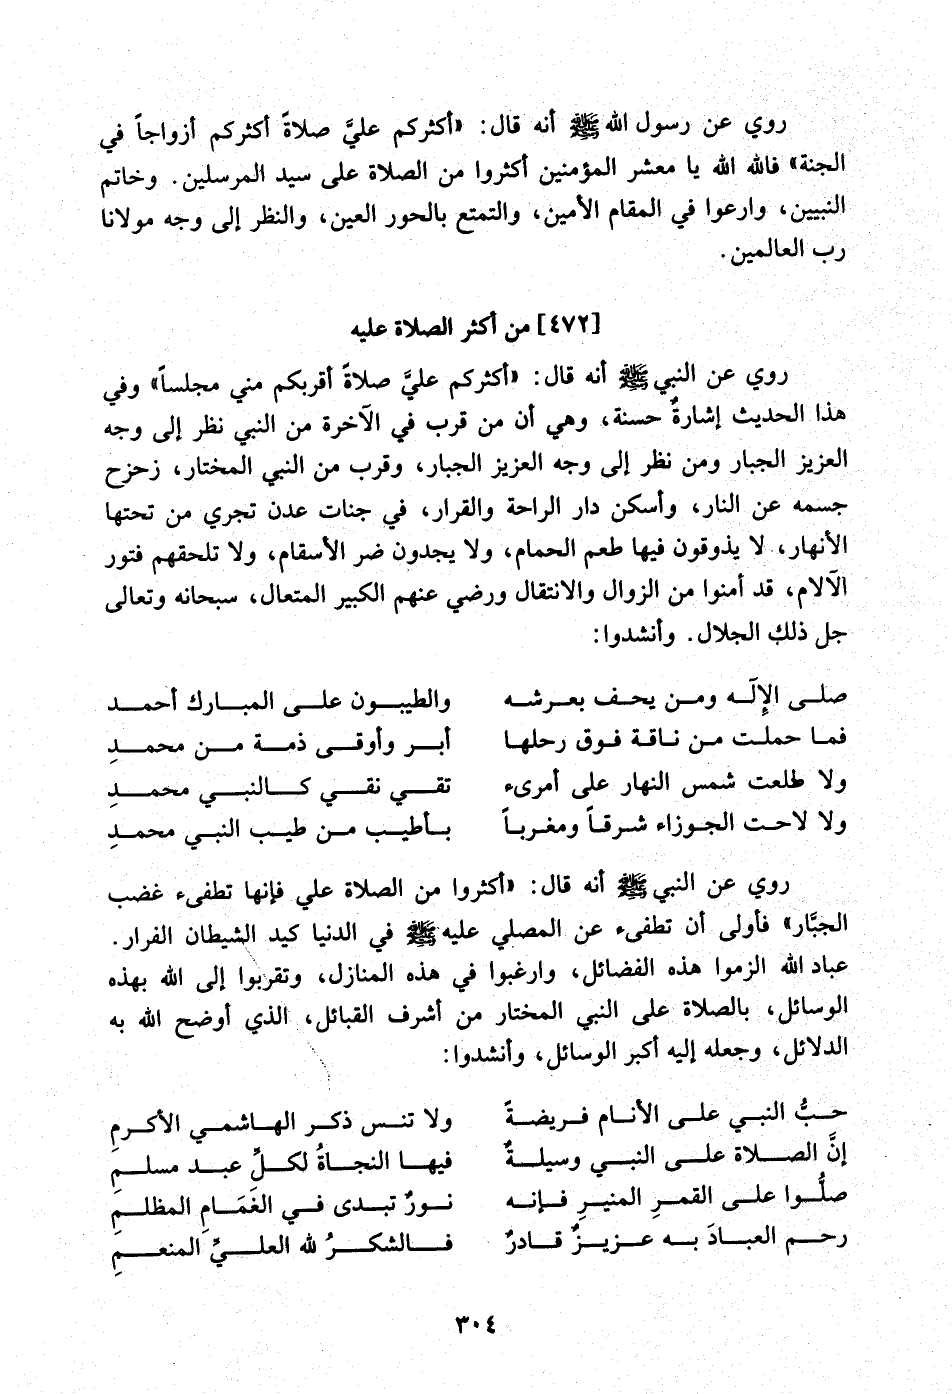 روي عن رسول الله ﷺ أنه قال: «أكثركم عليَّ صلاةً أكثركم أزواجاً في
الجنة» فالله الله يا معشر المؤمنين أكثروا من الصلاة على سيد المرسلين. وخاتم
النبيين، وارعوا في المقام الأمين، والتمتع بالحور العين، والنظر إلى وجه مولانا
رب العالمين.
[٤٧٢] من أكثر الصلاة عليه
روي عن النبي ﷺ أنه قال: «أكثركم عليَّ صلاةً أقربكم مني مجلساً» وفي
هذا الحديث إشارةٌ حسنة، وهي أن من قرب في الآخرة من النبي نظر إلى وجه
العزيز الجبار ومن نظر إلى وجه العزيز الجبار، وقرب من النبي المختار، زحزح
جسمه عن النار، وأسكن دار الراحة والقرار، في جنات عدن تجري من تحتها
الأنهار، لا يذوقون فيها طعم الحمام، ولا يجدون ضر الأسقام، ولا تلحقهم فتور
الآلام، قد أمنوا من الزوال والانتقال ورضي عنهم الكبير المتعال، سبحانه وتعالى
جل ذلك الجلال. وأنشدوا:
صلى الإلَه ومن يحف بعرشه والطيبون على المبارك أحمد
فما حملت من ناقة فوق رحلها أبر وأوقى ذمة من محمدِ
ولا طلعت شمس النهار على أمرىء تقي نقي كالنبي محمدِ
ولا لاحت الجوزاء شرقاً ومغرباً بأطيب من طيب النبي محمدِ
روي عن النبي ﷺ أنه قال: «أكثروا من الصلاة علي فإنها تطفىء غضب
الجبَّار» فأولى أن تطفىء عن المصلي عليه ﷺ في الدنيا كيد الشيطان الفرار.
عباد الله الزموا هذه الفضائل، وارغبوا في هذه المنازل، وتقربوا إلى الله بهذه
الوسائل، بالصلاة على النبي المختار من أشرف القبائل، الذي أوضح الله به
الدلائل، وجعله إليه أكبر الوسائل، وأنشدوا:
حبُّ النبي على الأنام فريضةً ولا تنس ذكر الهاشمي الأكرمِ
إنَّ الصلاة على النبي وسيلةٌ فيها النجاةُ لكلِّ عبد مسلمِ
صلُّوا على القمرِ المنيرِ فإنه نورٌ تبدى في الغَمَامِ المظلمِ
رحم العبادَ به عزيزٌ قادرٌ فالشكرُ لله العليِّ المنعمِ
٣٠٤